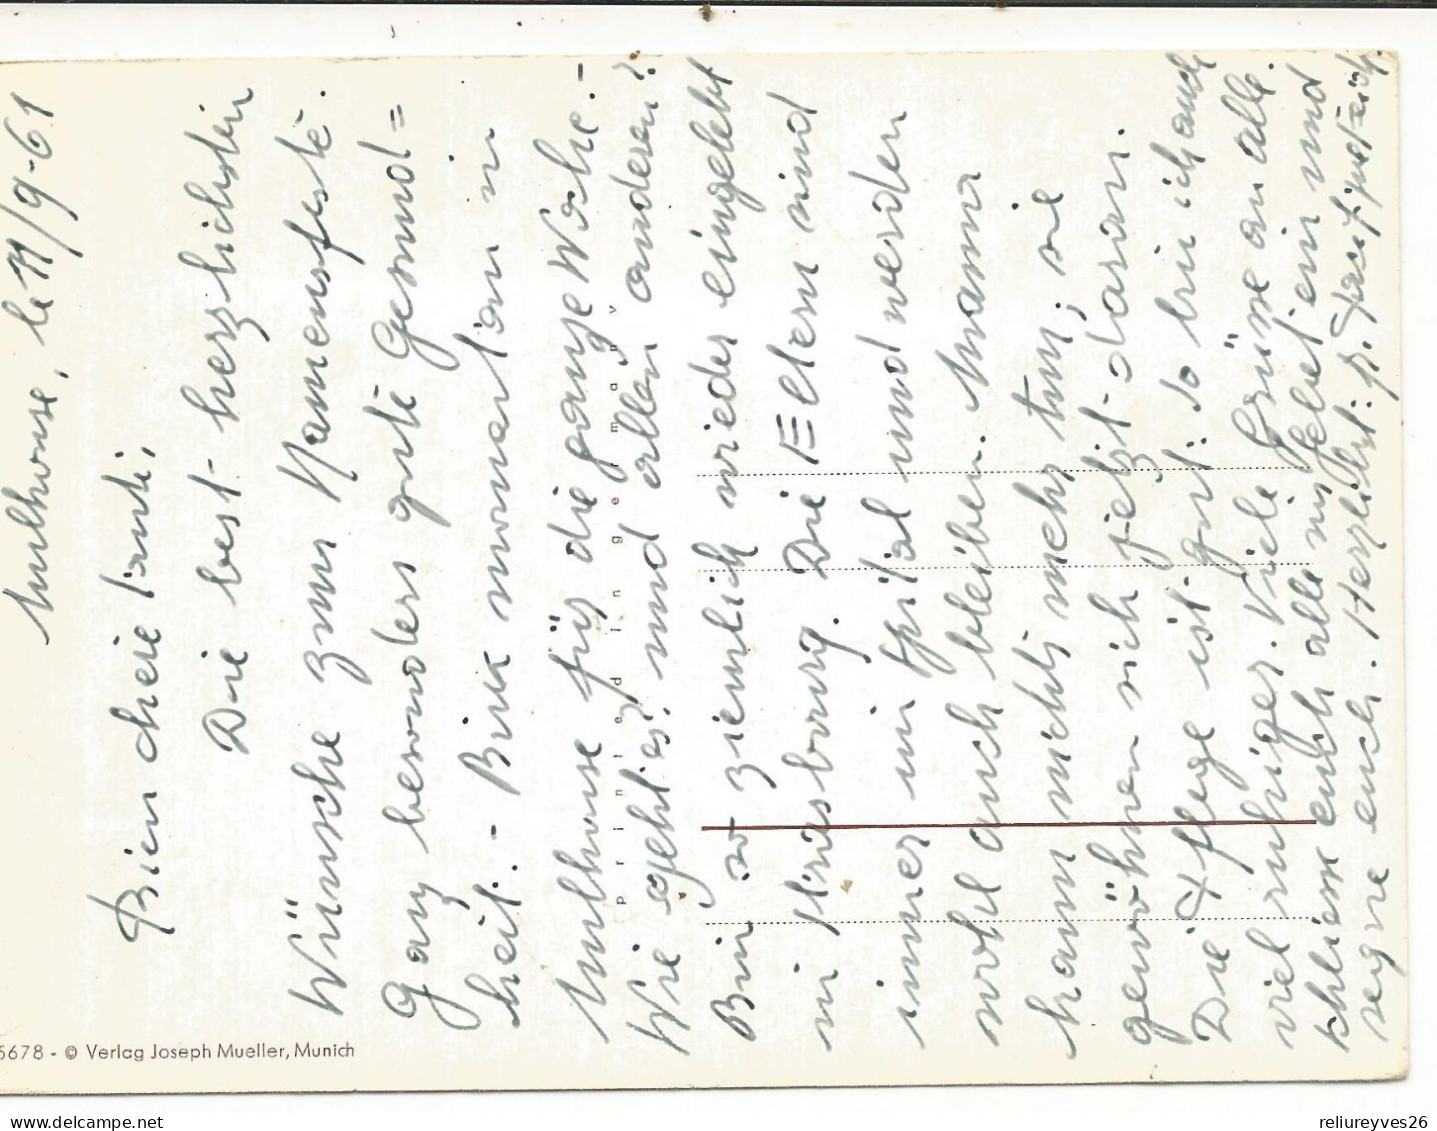 Mulhouse, le 11/9-61
Bien chère tante,
Die best- herzlichsten
Wünsche zum Namensfeste.
Ganz besonders gute Gesund=
heit. - Bin momentan in
Mulhouse für die ganze Woche. -
Wie geht es? und allen anderen?
Bin so ziemlich wieder eingelebt
in Strasbourg. Die Eltern sind
immer im Spital und werden
wohl auch bleiben. Mama
kann nichts mehr tun; sie
gewöhnen sich jetzt daran.
Die Pflege ist gut: so bin ich auch
viel ruhiger. Viele Grüsse an alle.
schliese euch alle ins Gebet ein und
segne euch. Herzlichst:
printed in germany
5678 - © Verlag Joseph Mueller, Munich
delcampe.net
reliureyves26